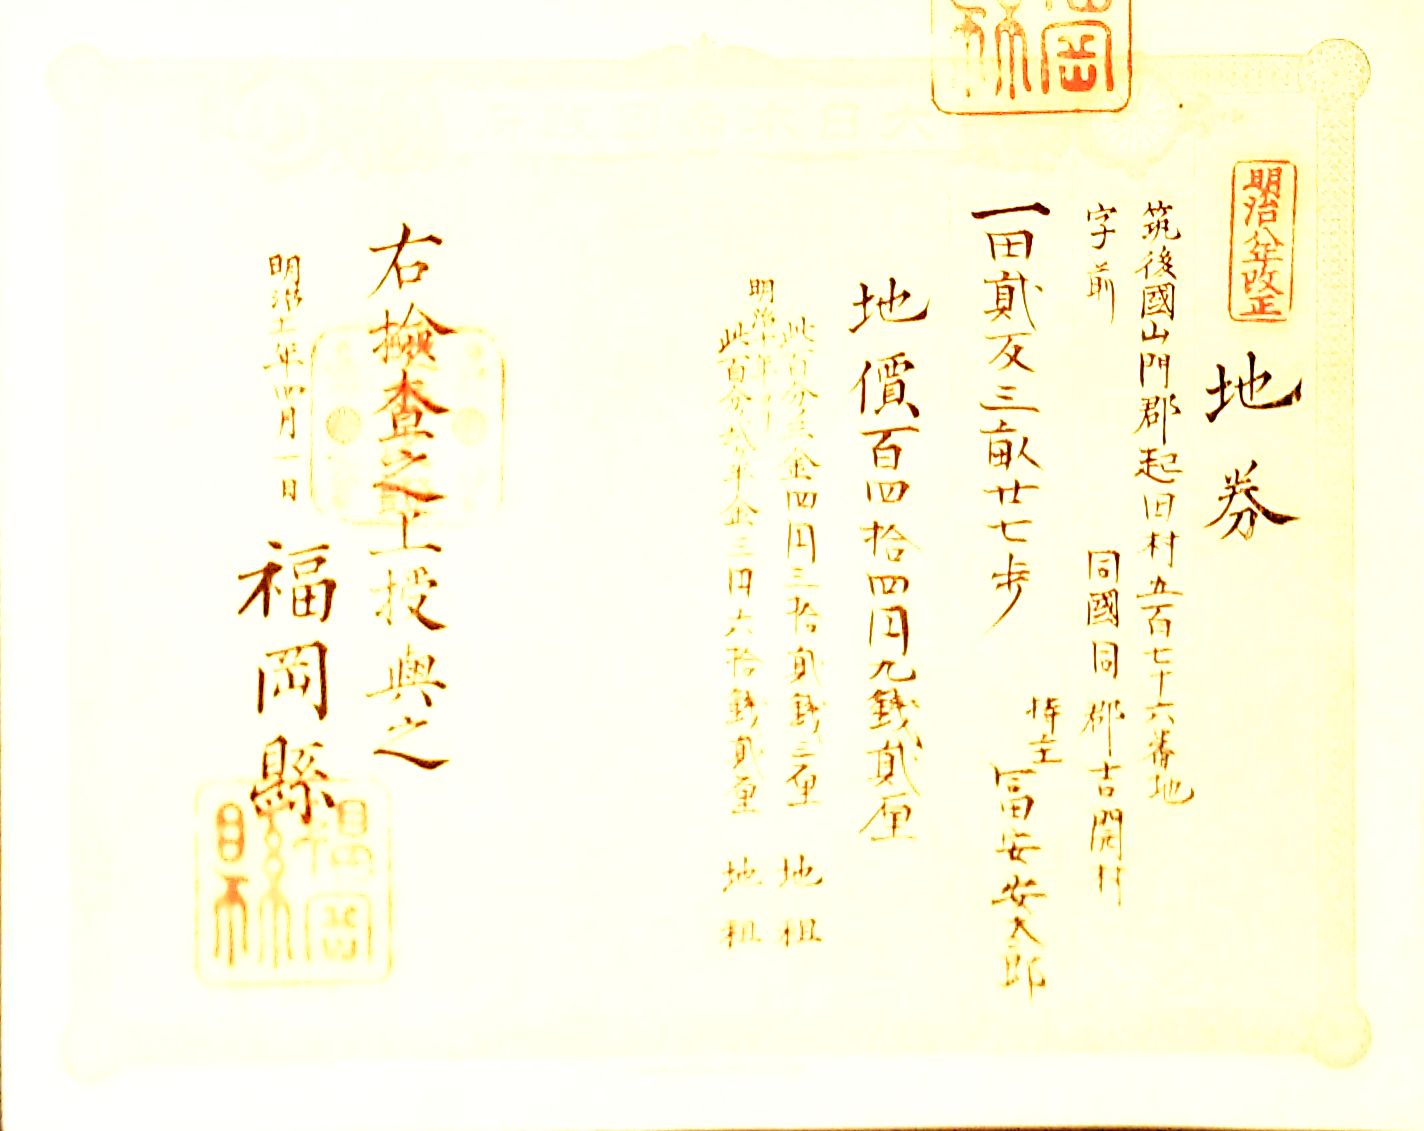 大日本帝國政府
明治八年改正
地券
筑後國山門郡起田村五百七十六番地
字前
同國同郡吉開村
一田貳反三畝廿七歩
持主
冨安安太郎
地價百四拾四円九錢貳厘
此百分ノ三金四円三拾貳錢三厘 地租
明治十年ヨリ
此百分ノ貳ヶ半金三円六拾錢貳厘 地租
右檢査之上授與之
明治十一年四月一日
福岡縣